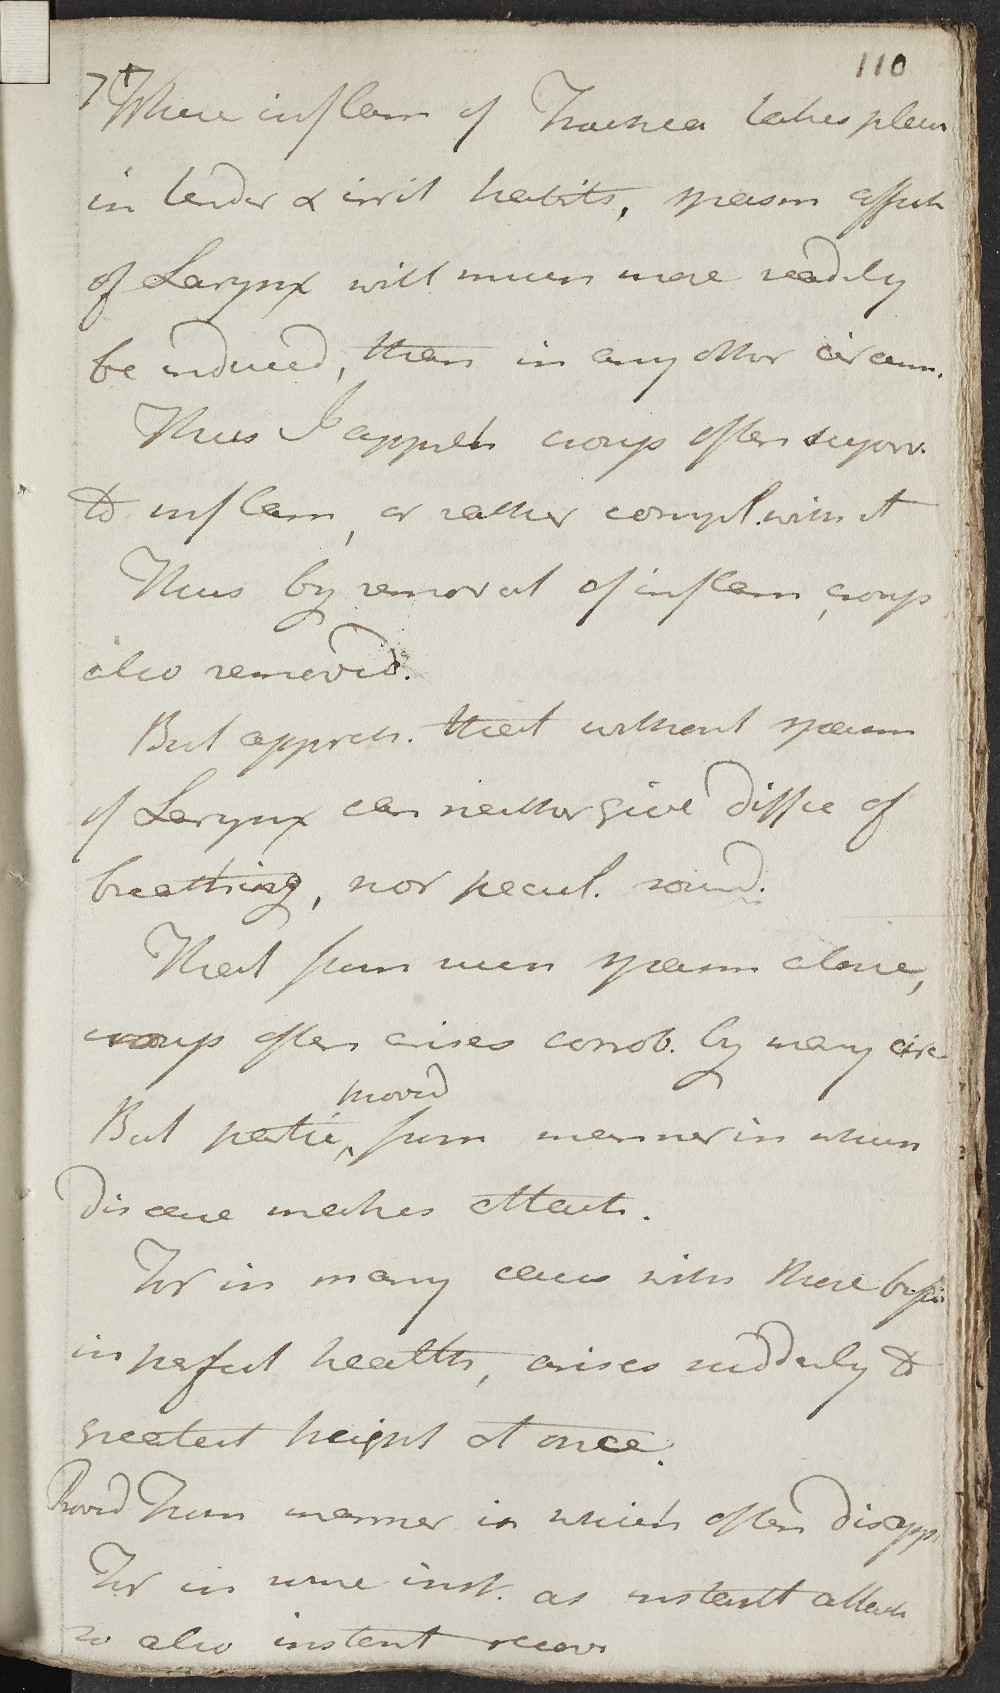 110
7+ Where inflam of Trachea takes place
in tender & irrit habits, spasm affect
of Larynx will much more readily
be induced, than in any other circum.
Thus I appreh croup often superv.
to inflam, or rather compl. with it
Thus by removal of inflam, croup
also removed.
But appreh. that without spasm
of Larynx can neither give diffic of
breathing, nor pecul. sound.
That from such spasm alone,
croup often arises corrob. by many circ
provd
But partic, from manner in which
disease makes attack.
For in many cases with those befor
in perfect health, arises suddenly &
greatest height at once.
Provd from manner in which often disapp.
For in some inst. as instant attack
so also instant recov